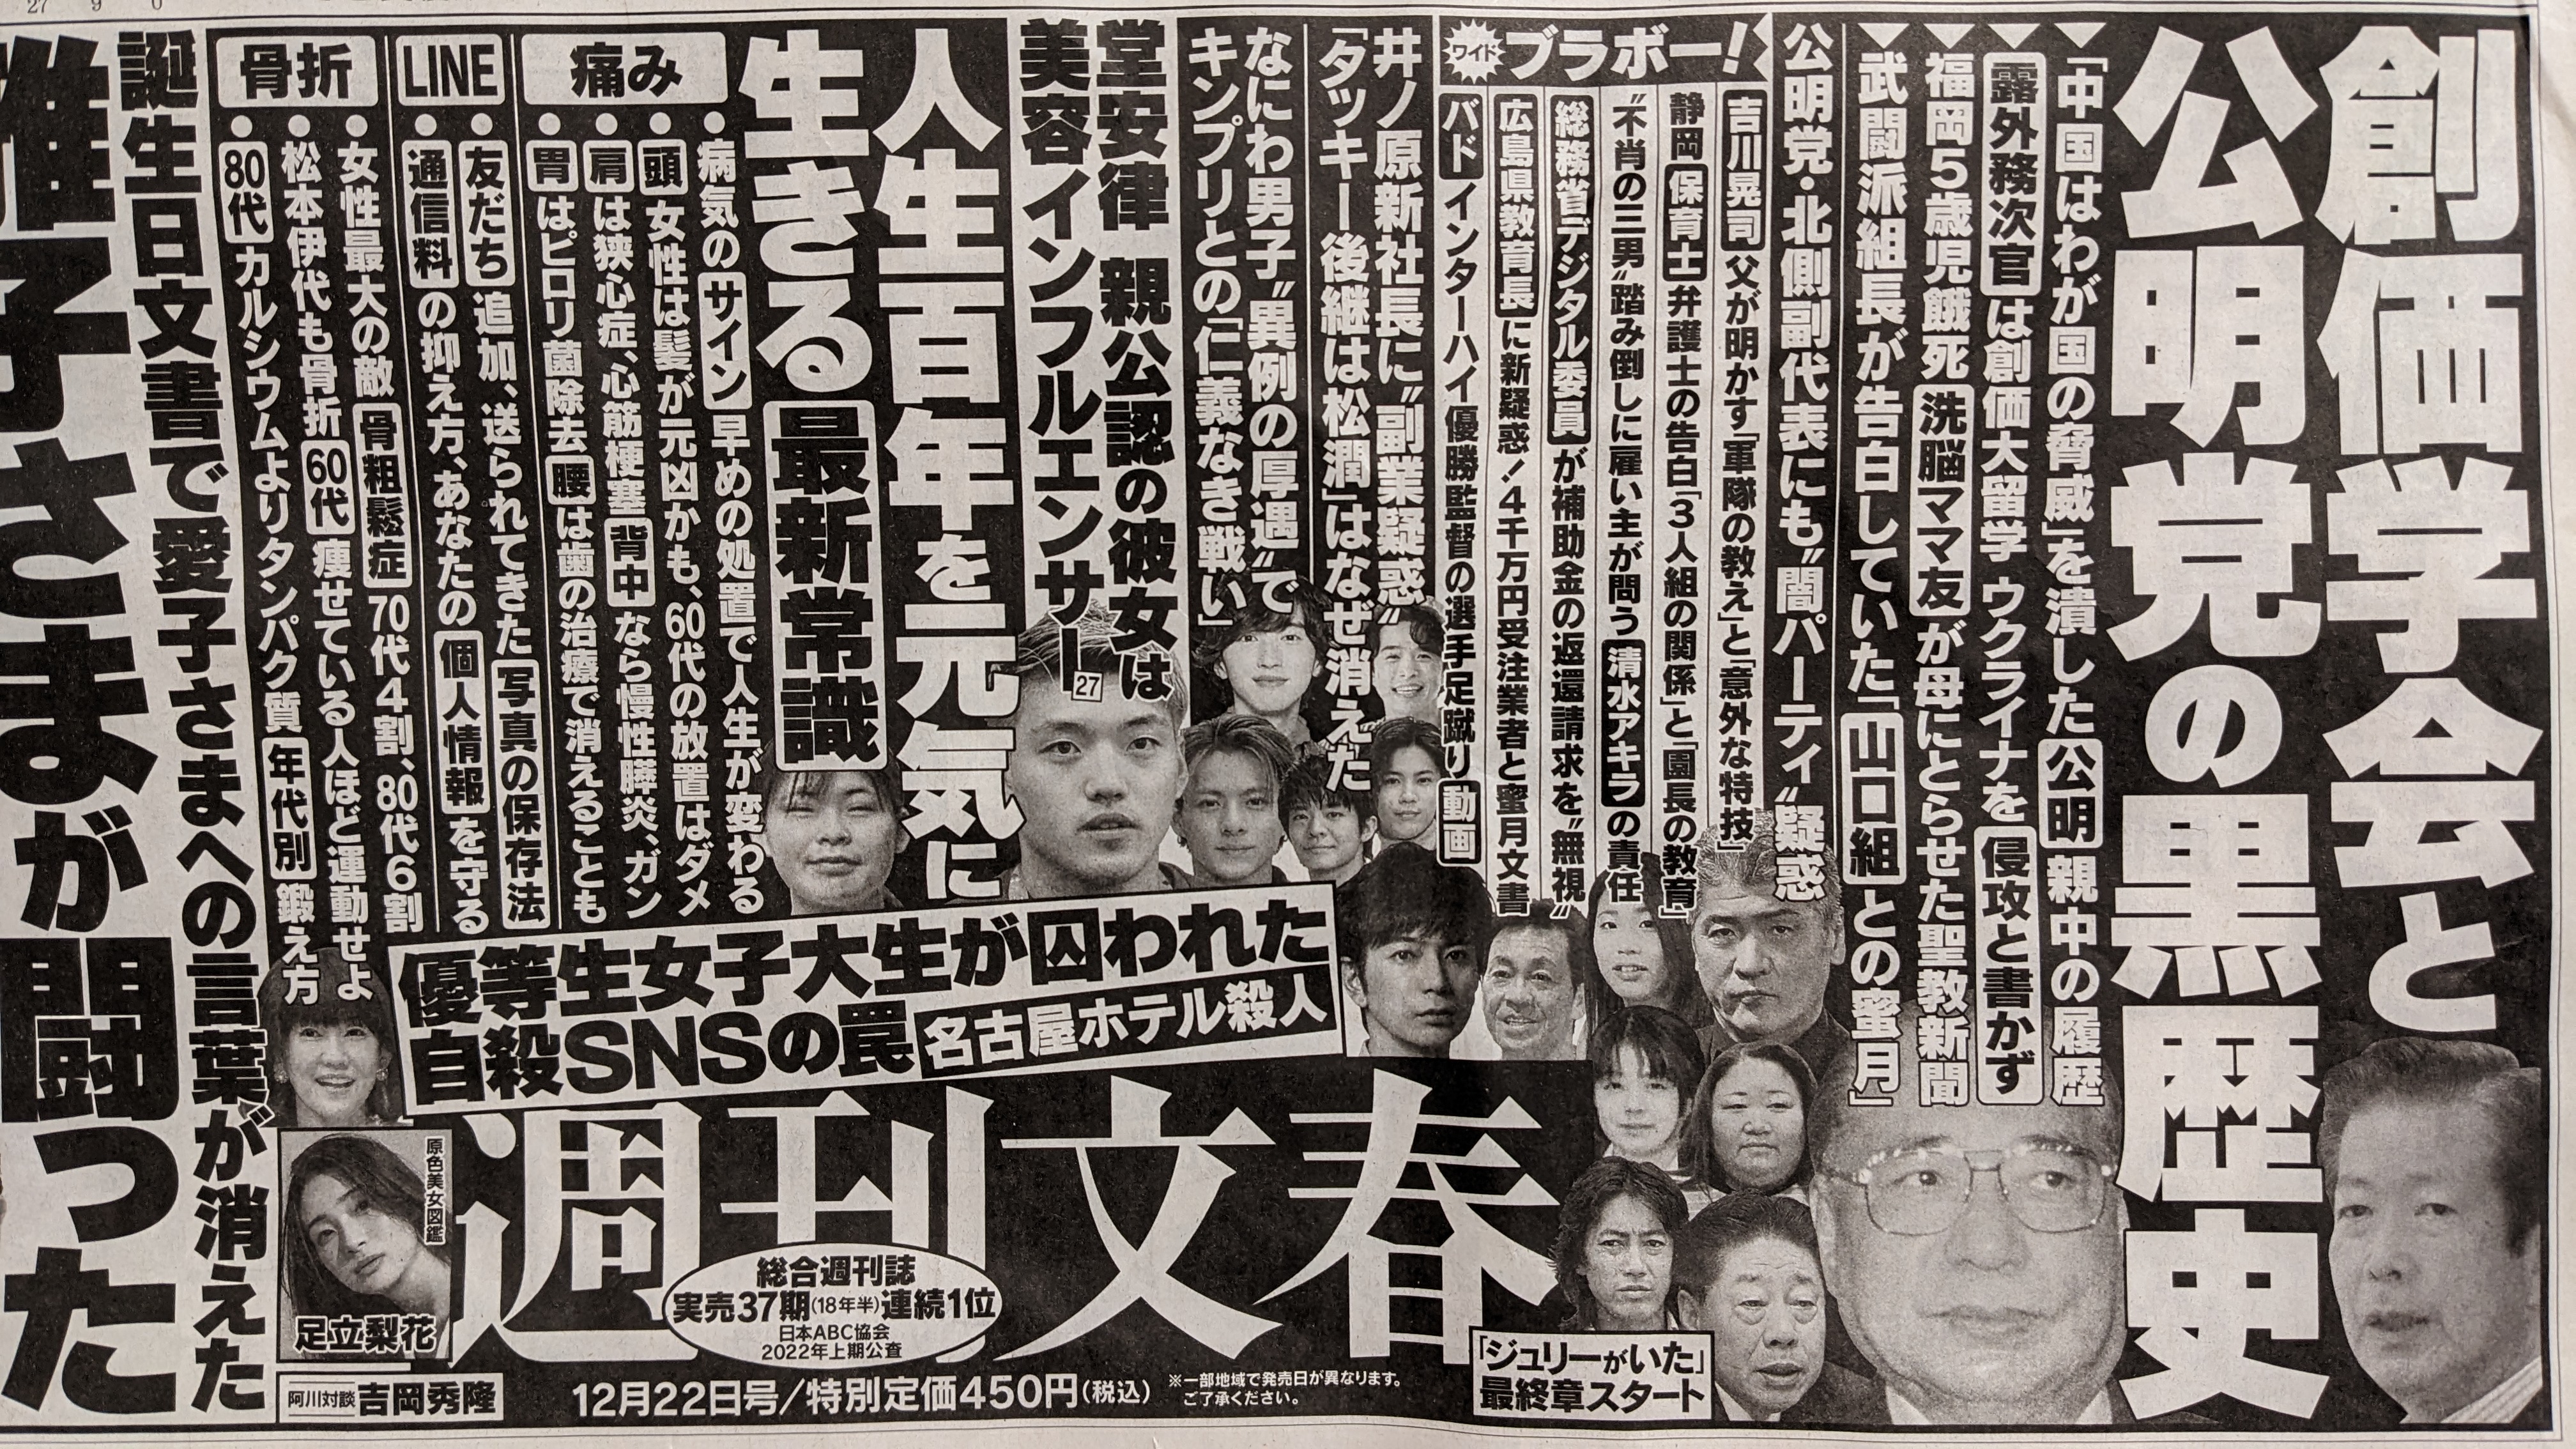 創価学会と
公明党の黒歴史
「中国はわが国の脅威」を潰した公明 親中の履歴
露外務次官は創価大留学 ウクライナを侵攻と書かず
福岡5歳児餓死 洗脳ママ友が母にとらせた聖教新聞
武闘派組長が告白していた「山口組との蜜月」
公明党・北側副代表にも〝闇パーティ〟疑惑
ワイド ブラボー!
吉川晃司 父が明かす「軍隊の教え」と「意外な特技」
静岡 保育士 弁護士の告白「3人組の関係」と「園長の教育」
〝不肖の三男〟踏み倒しに雇い主が問う 清水アキラの責任
総務省デジタル委員が補助金の返還請求を〝無視〟
広島県教育長に新疑惑!4千万円受注業者と蜜月文書
バドインターハイ優勝監督の選手足蹴り動画
井ノ原新社長に〝副業疑惑〟
「タッキー後継は松潤」はなぜ消えた
なにわ男子〝異例の厚遇〟で
キンプリとの「仁義なき戦い」
堂安律 親公認の彼女は
美容インフルエンサー27
人生百年を元気に
生きる最新常識
痛み
病気のサイン 早めの処置で人生が変わる
頭 女性は髪が元凶かも、60代の放置はダメ
肩は狭心症、心筋梗塞 背中なら慢性膵炎、ガン
胃はピロリ菌除去 腰は歯の治療で消えることも
LINE
友だち追加、送られてきた写真の保存法
通信料の抑え方、あなたの個人情報を守る
骨折
女性最大の敵 骨粗鬆症 70代4割、80代6割
松本伊代も骨折 60代 痩せている人ほど運動せよ
80代 カルシウムよりタンパク質 年代別 鍛え方
誕生日文書で愛子さまへの言葉が消えた
雅子さまが闘った
優等生女子大生が囚われた
自殺SNSの罠 名古屋ホテル殺人
週刊文春
総合週刊誌
実売37期(18年半)連続1位
日本ABC協会
2022年上期公査
原色美女図鑑
足立梨花
阿川対談 吉岡秀隆
12月22日号/特別定価450円(税込)
※一部地域で発売日が異なります。
ご了承ください。
「ジュリーがいた」
最終章スタート